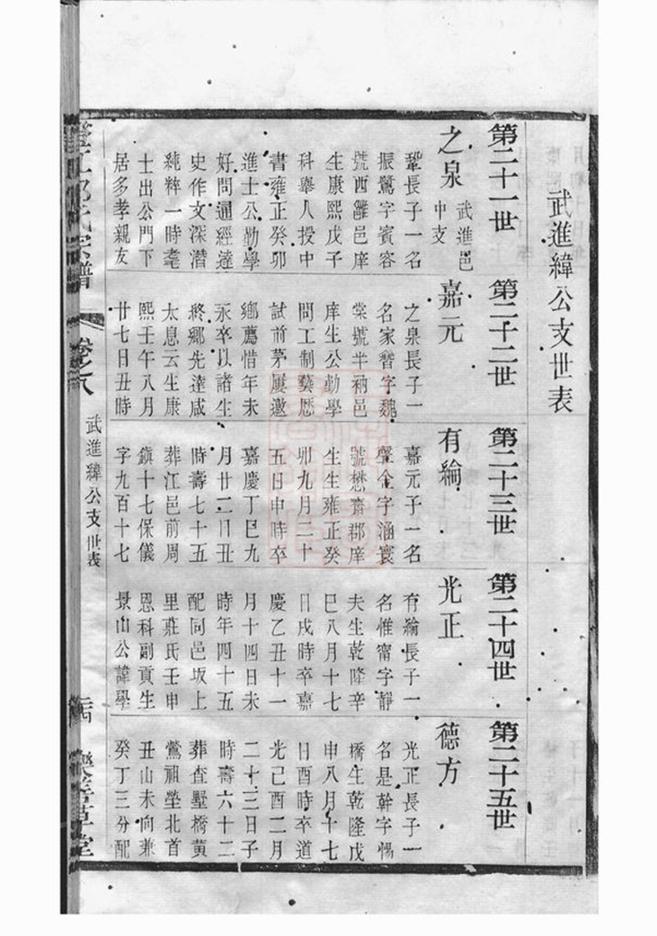 武進緯公支世表
第二十一世
之泉
武進邑
中支
鞏長子一名
振鷺字賓容
號西雝邑庠
生康熙戊子
科舉人授中
書雍正癸卯
進士公勤學
好問通經達
史作文深潛
純粹一時耄
士出公門下
居多孝親友
第二十二世
嘉元
之泉長子一
名家督字魏
棠號半衲邑
庠生公勤學
問工制藝歷
試前茅屢邀
鄉薦惜年未
永卒以諸生
終鄉先達咸
太息云生康
熙壬午八月
廿七日丑時
第二十三世
有綸
嘉元子一名
聲金字涵寰
號懋齋郡庠
生生雍正癸
卯九月二十
五日申時卒
嘉慶丁巳九
月廿二日丑
時壽七十五
葬江邑前周
鎮十七保儀
字九百十七
第二十四世
光正
有綸長子一
名惟甯字靜
夫生乾隆辛
巳八月十七
日戌時卒嘉
慶乙丑十一
月十四日未
時年四十五
配同邑坂上
里莊氏壬申
恩科副貢生
景山公諱學
第二十五世
德方
光正長子一
名是幹字惕
橋生乾隆戊
申八月十七
日酉時卒道
光己酉二月
二十三日子
時壽六十二
葬查墅橋黃
鶯祖塋北首
丑山未向兼
癸丁三分配
卷之八
武進緯公支世表